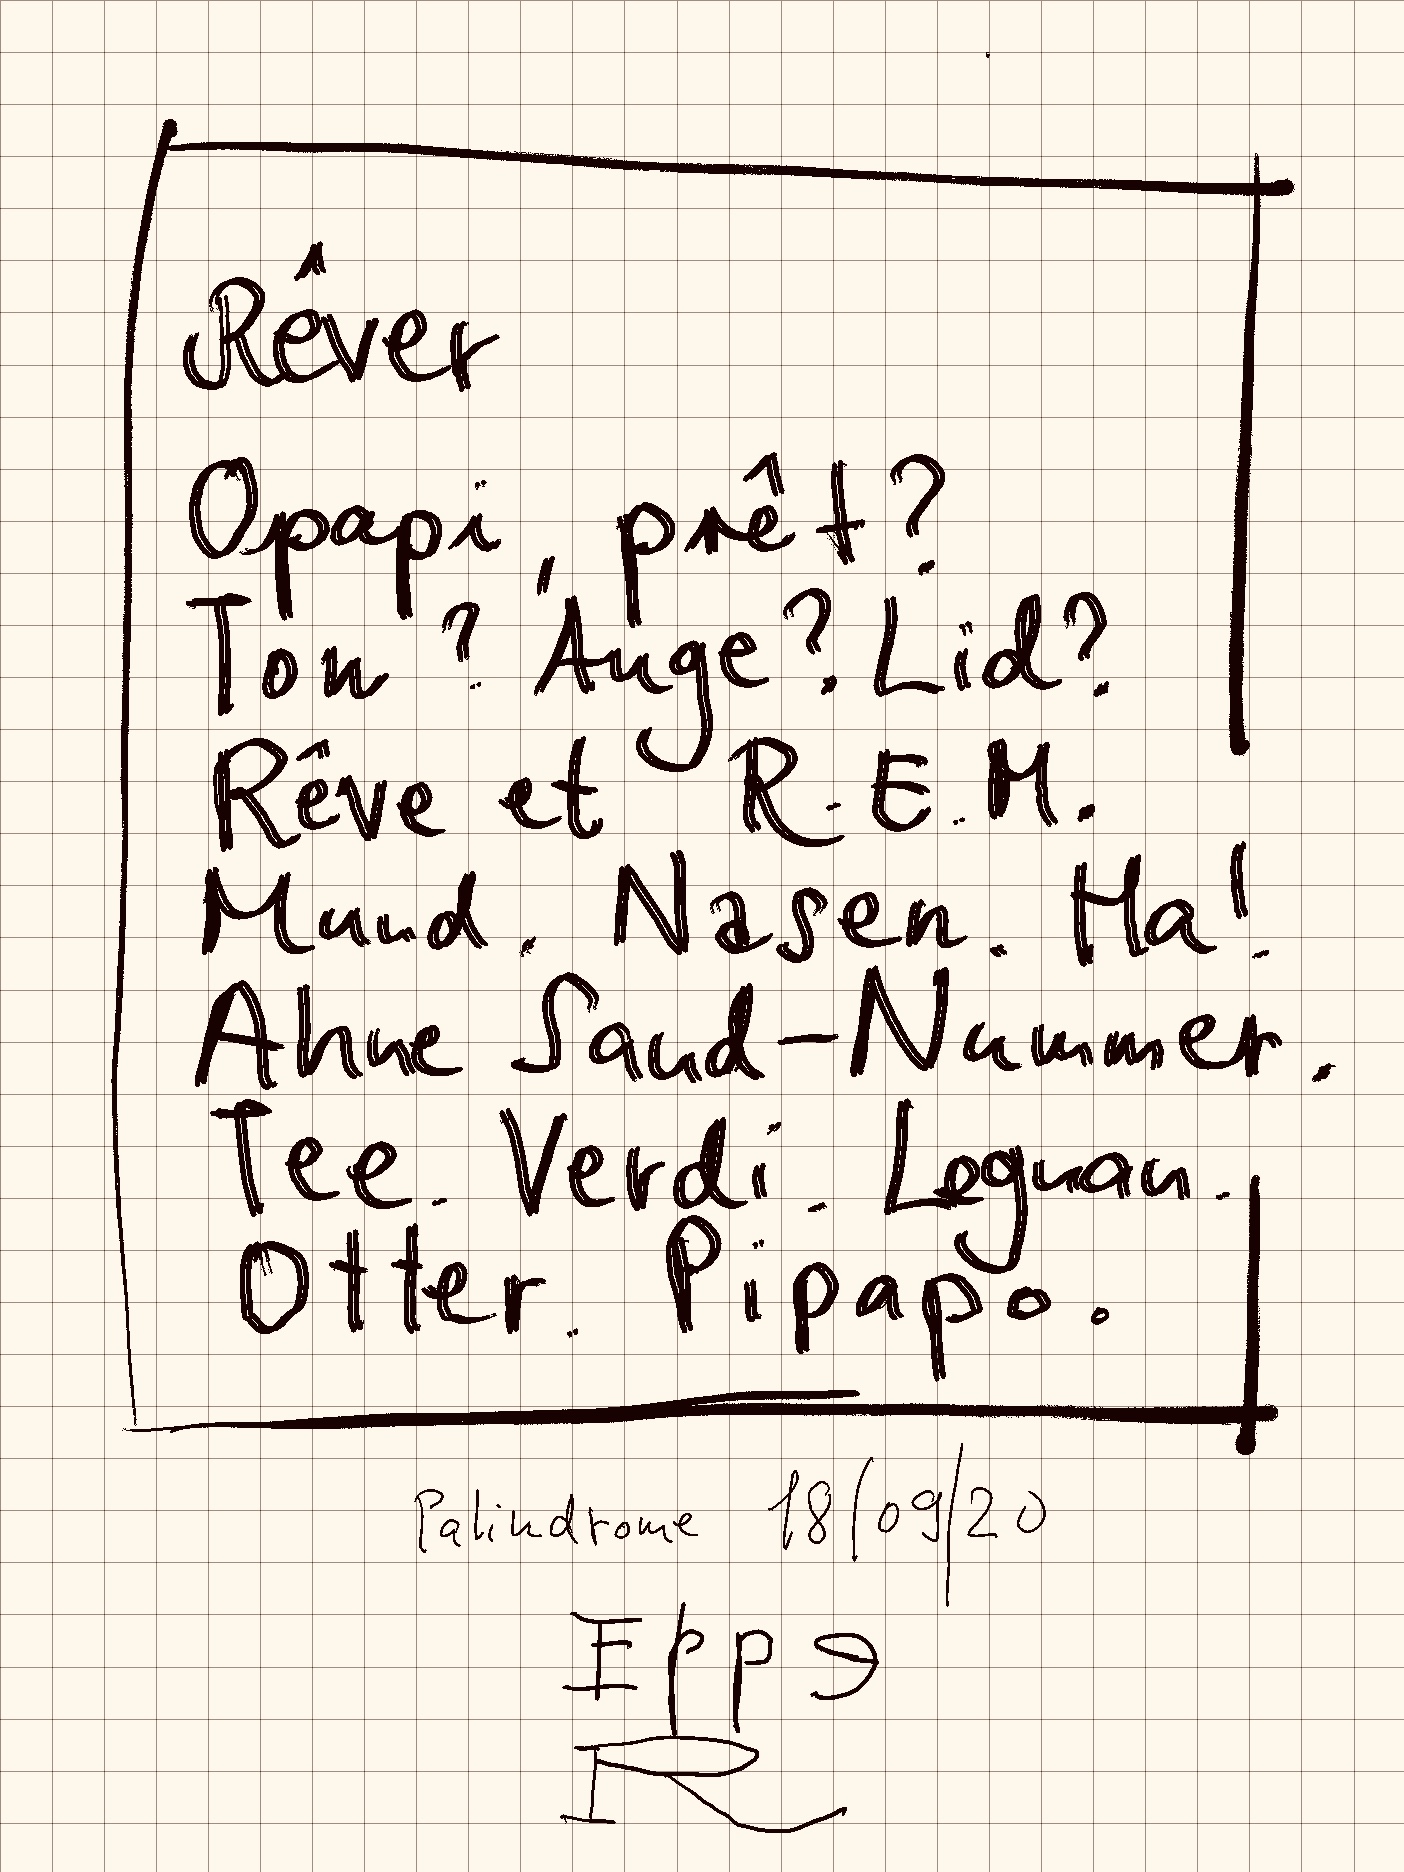 Rêver
Opapi, prêt?
Ton? Auge? Lid?
Rêve et R.E.M.
Mund. Nasen. Ha!
Ahne Sand-Nummer.
Tee. Verdi. Leguan.
Otter. Pipapo.
Palindrome 18/09/20
Eppǝ
R